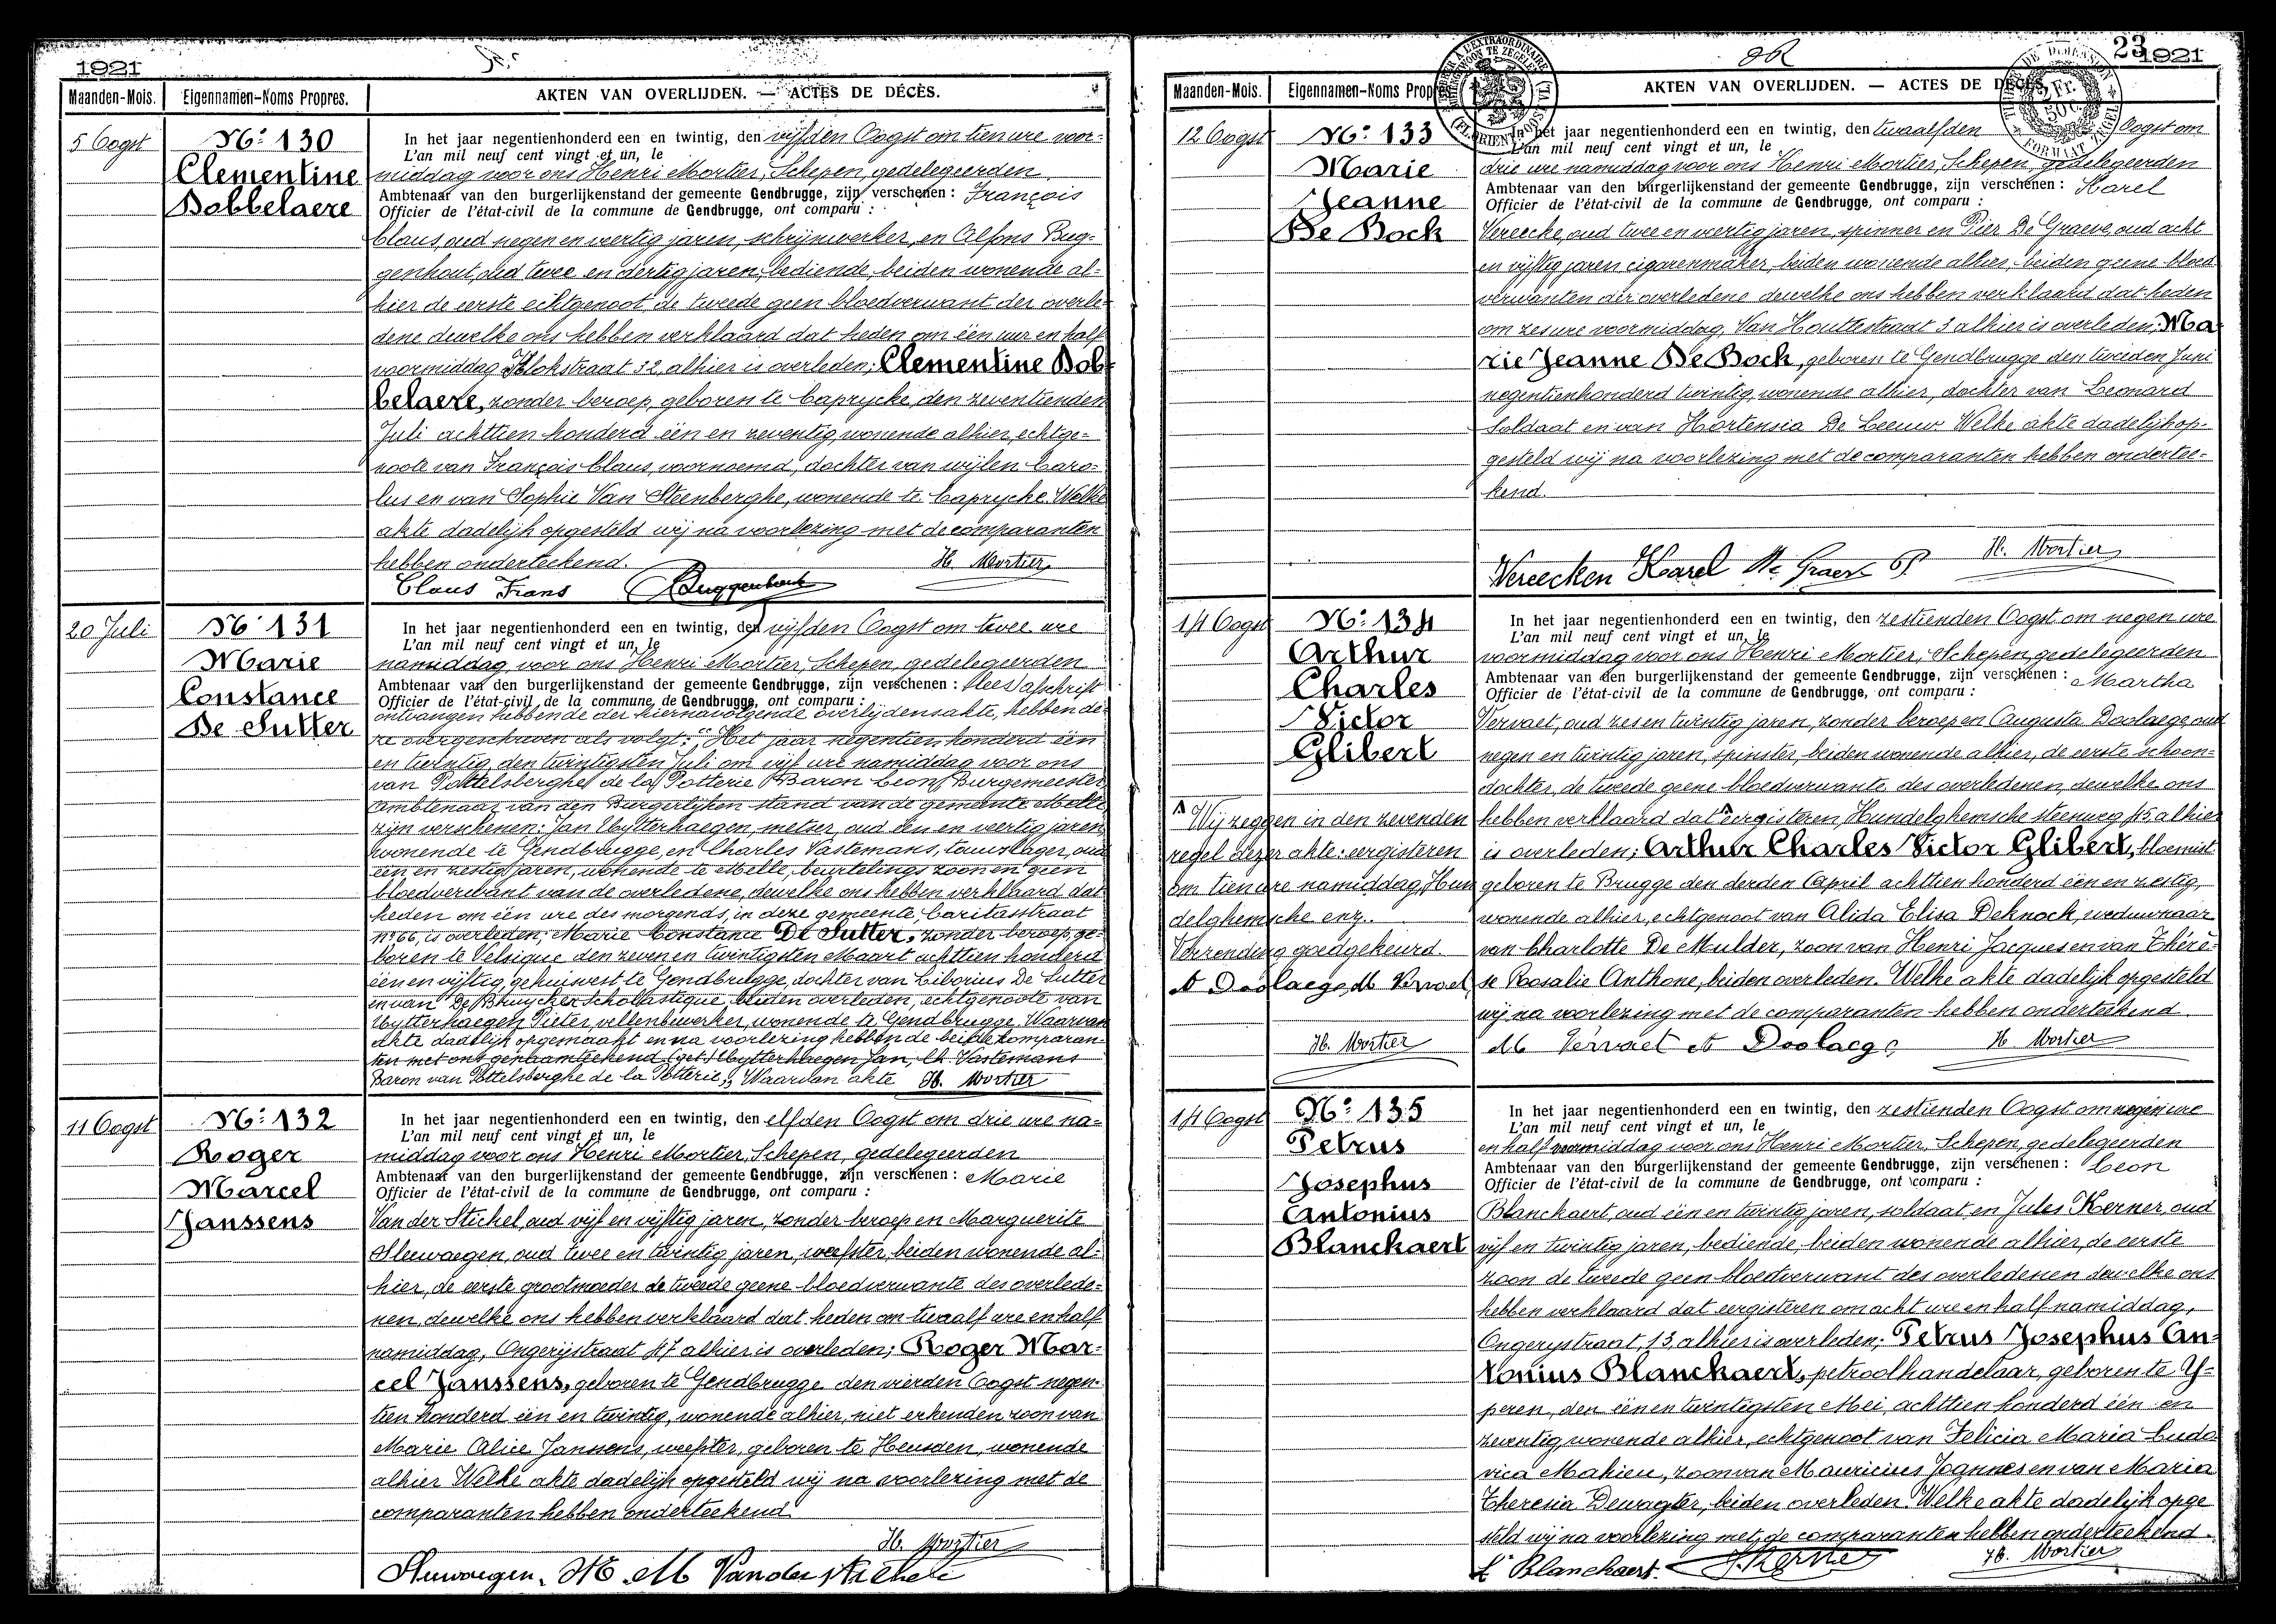 1921
Maanden-Mois. Eigennamen-Noms Propres. AKTEN VAN OVERLIJDEN. — ACTES DE DÉCÈS.
5 Oogst
No: 130
Clementine
Dobbelaere
In het jaar negentienhonderd een en twintig, den vijfden Oogst om tien ure voor=
L'an mil neuf cent vingt et un, le
middag voor ons Henri Mortier, Schepen, gedelegeerden
Ambtenaar van den burgerlijkenstand der gemeente Gendbrugge, zijn verschenen : François
Officier de l'état-civil de la commune de Gendbrugge, ont comparu :
Claus, oud negen en veertig jaren, schrijnwerker, en Alfons Bug=
genhout, oud twee en dertig jaren, bediende, beiden wonende al=
hier de eerste echtgenoot, de tweede geen bloedverwant der overle=
dene dewelke ons hebben verklaard dat heden om één uur en half
voormiddag Klokstraat 32, alhier is overleden; Clementine Dob=
belaere, zonder beroep, geboren te Caprycke, den zeventienden
Juli achttien honderd één en zeventig, wonende alhier, echtge=
noote van François Claus, voornoemd, dochter van wijlen Caro=
lus en van Sophie Van Steenberghe, wonende te Caprycke. Welke
akte dadelijk opgesteld wij na voorlezing met de comparanten
hebben onderteekend.
H. Mortier
Claus Frans Buggenhout
20 Juli
No 131
Marie
Constance
De Sutter
In het jaar negentienhonderd een en twintig, den vijfden Oogst om twee ure
L'an mil neuf cent vingt et un, le
namiddag, voor ons Henri Mortier, Schepen, gedelegeerden
Ambtenaar van den burgerlijkenstand der gemeente Gendbrugge, zijn verschenen : (lees) afschrift
Officier de l'état-civil de la commune de Gendbrugge, ont comparu :
ontvangen hebbende der hiernavolgende overlijdensakte, hebben de=
ze overgeschreven als volgt: "Het jaar negentien honderd één
en twintig, den twintigsten Juli om vijf ure namiddag voor ons
van Pottelsberghe de la Potterie Baron Leon, Burgemeester
ambtenaar van den Burgerlijken stand van de gemeente Melle
zijn verschenen: Jan Uytterhaegen, metser, oud één en veertig jaren
wonende te Gendbrugge, en Charles Vastemans, touwslager, oud
één en zestig jaren, wonende te Melle, beurtelings zoon en geen
bloedverwant van de overledene, dewelke ons hebben verklaard dat
heden om één ure des morgends, in deze gemeente, Caritasstraat
No 66, is overleden; Marie Constance De Sutter, zonder beroep, ge=
boren te Velsique den zeven en twintigsten Maart achttien honderd
één en vijftig, gehuisvest te Gendbrugge, dochter van Liborius De Sutter
en van De Bruycker Schollastique, beiden overleden, echtgenoote van
Uytterhaegen Pieter, vellenbewerker, wonende te Gendbrugge. Waarvan
akte dadelijk opgemaakt en na voorlezing hebben de beide komparan=
ten met ons genaamteekend (get) Uytterhaegen Jan, Ch. Vastemans
Baron van Pottelsberghe de la Potterie;, Waarvan akte H. Mortier
11 Oogst
No: 132
Roger
Marcel
Janssens
In het jaar negentienhonderd een en twintig, den elfden Oogst om drie ure na=
L'an mil neuf cent vingt et un, le
middag voor ons Henri Mortier, Schepen, gedelegeerden
Ambtenaar van den burgerlijkenstand der gemeente Gendbrugge, zijn verschenen : Marie
Officier de l'état-civil de la commune de Gendbrugge, ont comparu :
Van der Stichel, oud vijf en vijftig jaren, zonder beroep en Marguerite
Sleuwaegen, oud twee en twintig jaren, weefster, beiden wonende al=
hier, de eerste grootmoeder de tweede geene bloedverwante des overlede=
nen, dewelke ons hebben verklaard dat heden om twaalf ure en half
namiddag, Ongerijstraat 47 alhier is overleden; Roger Mar=
cel Janssens, geboren te Gendbrugge den vierden Oogst negen=
tien honderd één en twintig, wonende alhier, niet erkenden zoon van
Marie Alice Janssens, weefster, geboren te Heusden, wonende
alhier Welke akte dadelijk opgesteld wij na voorlezing met de
comparanten hebben onderteekend
H. Mortier
23
1921
Maanden-Mois. Eigennamen-Noms Propres. AKTEN VAN OVERLIJDEN. — ACTES DE DÉCÈS.
12 Oogst
No: 133
Marie
Jeanne
De Bock
In het jaar negentienhonderd een en twintig, den twaalfden Oogst om
L'an mil neuf cent vingt et un, le
drie ure namiddag voor ons Henri Mortier, Schepen, gedelegeerden
Ambtenaar van den burgerlijkenstand der gemeente Gendbrugge, zijn verschenen : Karel
Officier de l'état-civil de la commune de Gendbrugge, ont comparu :
Vereecke, oud twee en veertig jaren, spinner en Pier De Graeve, oud acht
en vijftig jaren cigarenmaker, beiden wonende alhier, beiden geene bloed
verwanten der overledene dewelke ons hebben verklaard dat heden
om zes ure voormiddag, Van Houttestraat 3 alhier is overleden; Ma=
rie Jeanne De Bock, geboren te Gendbrugge den tweeden Juni
negentienhonderd twintig, wonende alhier, dochter van Leonard
Soldaat en van Hortensia De Leeuw. Welke akte dadelijk op=
gesteld wij na voorlezing met de comparanten hebben ondertee=
kend.
H. Mortier
Vereecken Karel De Graeve P.
14 Oogst
No: 134
Arthur
Charles
Victor
Glibert
In het jaar negentienhonderd een en twintig, den zestienden Oogst om negen ure
L'an mil neuf cent vingt et un, le
voormiddag voor ons Henri Mortier, Schepen, gedelegeerden
Ambtenaar van den burgerlijkenstand der gemeente Gendbrugge, zijn verschenen : Martha
Officier de l'état-civil de la commune de Gendbrugge, ont comparu :
Vervaet, oud zes en twintig jaren, zonder beroep en Augusta Doolaege, oud
negen en twintig jaren, spinster, beiden wonende alhier, de eerste schoon=
dochter, de tweede geene bloedverwante des overledenen, dewelke ons
hebben verklaard dat eergisteren, Hundelghemsche steenweg 45 alhier
is overleden; Arthur Charles Victor Glibert, bloemist
geboren te Brugge den derden April achttien honderd één en zestig,
wonende alhier, echtgenoot van Alida Elisa Deknock, weduwnaar
van Charlotte De Mulder, zoon van Henri Jacques en van Thérè=
se Rosalie Anthone, beiden overleden. Welke akte dadelijk opgesteld
wij na voorlezing met de comparanten hebben onderteekend
Wij zeggen in den zevenden
regel dezer akte: eergisteren
om tien ure namiddag, Hun
delghemsche enz..
Verzending goedgekeurd.
A Doolaege, M Vervaet
H. Mortier
M Vervaet A Doolaege H Mortier
14 Oogst
No: 135
Petrus
Josephus
Antonius
Blanckaert
In het jaar negentienhonderd een en twintig, den zestienden Oogst om negen ure
L'an mil neuf cent vingt et un, le
en half voormiddag voor ons Henri Mortier, Schepen, gedelegeerden
Ambtenaar van den burgerlijkenstand der gemeente Gendbrugge, zijn verschenen : Leon
Officier de l'état-civil de la commune de Gendbrugge, ont comparu :
Blanckaert, oud één en twintig jaren, soldaat en Jules Kerner, oud
vijf en twintig jaren, bediende, beiden wonende alhier, de eerste
zoon de tweede geen bloedverwant des overledenen dewelke ons
hebben verklaard dat eergisteren om acht ure en half namiddag,
Ongerystraat, 13, alhier is overleden; Petrus Josephus An=
tonius Blanckaert, petroolhandelaar, geboren te Y=
peren, den één en twintigsten Mei, achttien honderd één en
zeventig, wonende alhier, echtgenoot van Felicia Maria Ludo
vica Mahieu, zoon van Mauricius Joannes en van Maria
Theresia Dewagter, beiden overleden. Welke akte dadelijk opge
steld wij na voorlezing met de comparanten hebben onderteekend.
L. Blanckaert. J. Kerner H. Mortier